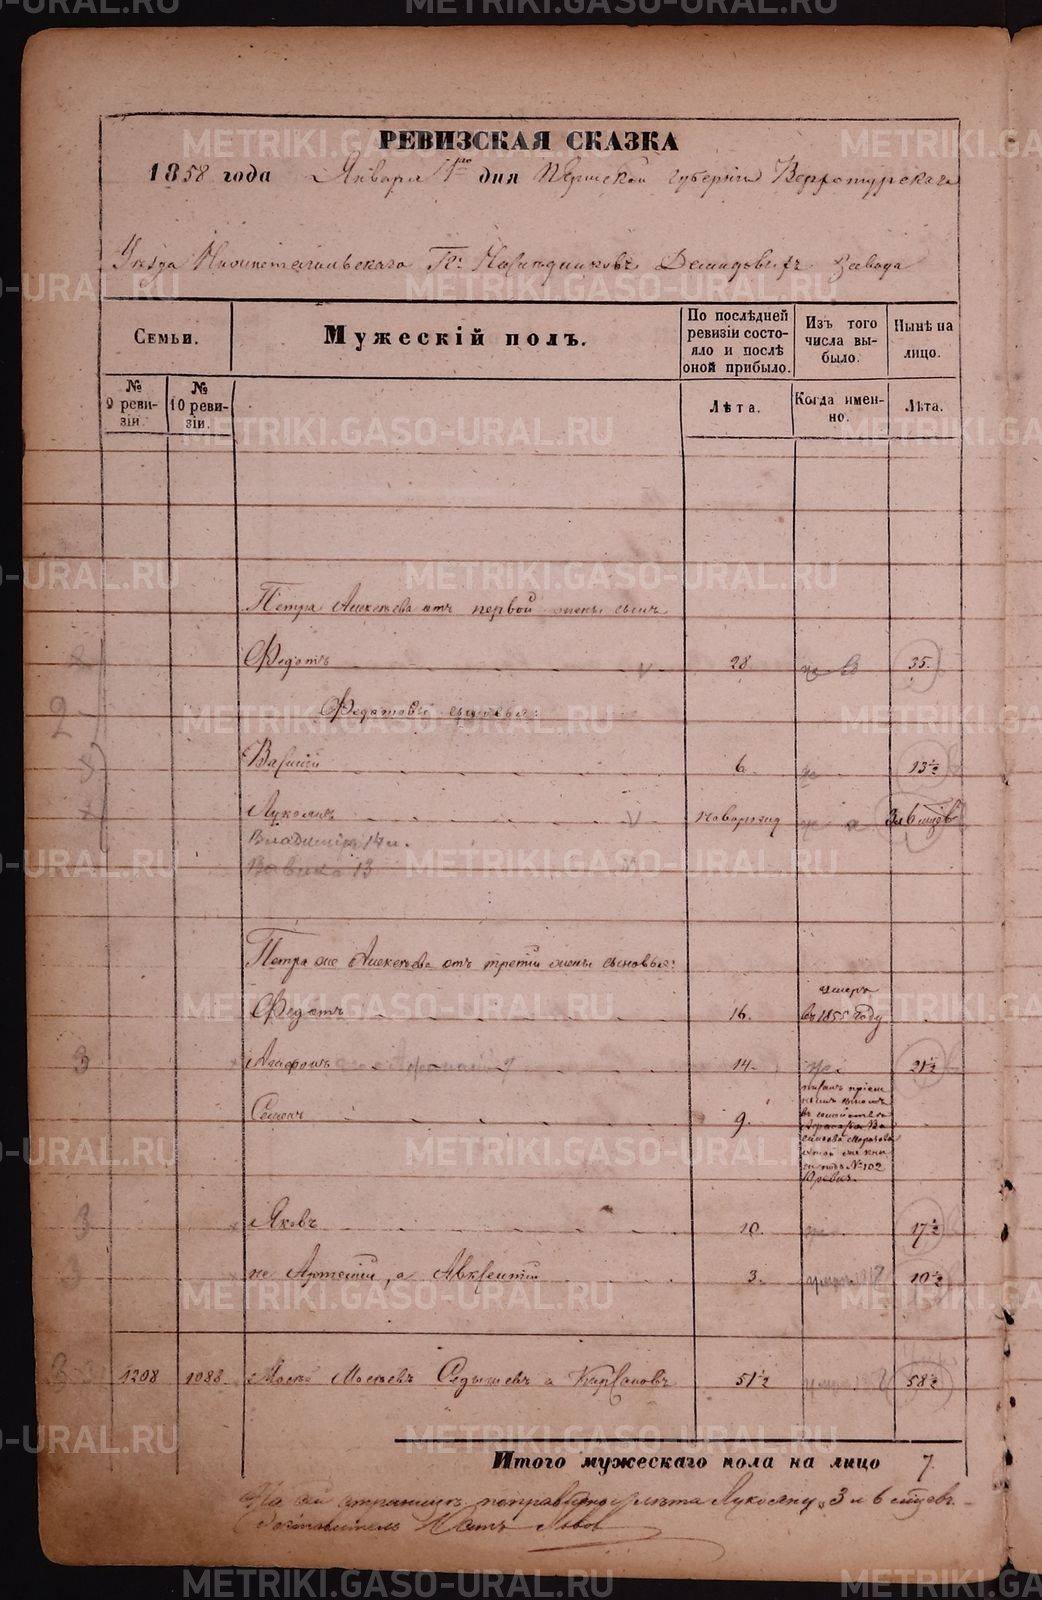 METRIKI.GASO-URAL.RU
РЕВИЗСКАЯ СКАЗКА
1858 года Января 1го дня Пермской Губерніи Верхотурскаго
Уезда Нижнетагильскаго Гг. Наследниковъ Демидовыхъ Завода
Семьи.
Мужескій полъ.
По послѣдней ревизіи состояло и послѣ оной прибыло.
Изъ того числа выбыло.
Нынѣ на лицо.
№ 9 ревизіи.
№ 10 ревизіи.
Лѣта.
Когда именно.
Лѣта.
Петра Алексѣева отъ первой жены сынъ
Федотъ 28 35.
Федотовы сыновья:
Василій 6. 13½
Лукоянъ новорожд 3 л 6 мцов
Владимір 14 л.
Вавило 13
Петра же Алексѣева отъ третій жены сыновья:
Федотъ 16. умеръ въ 1855 году
Агафонъ 14. 21½
Семенъ 9.
подъ № 102
Яковъ 10. 17½
не Артемій, а Авксентій 3. 10½
1208 1088 Мосей Мосѣевъ Седышевъ а 51½ 58½
Итого мужескаго пола на лицо 7.
На сей страницѣ поправлено лѣта Лукояну „3 л 6 мцевъ.